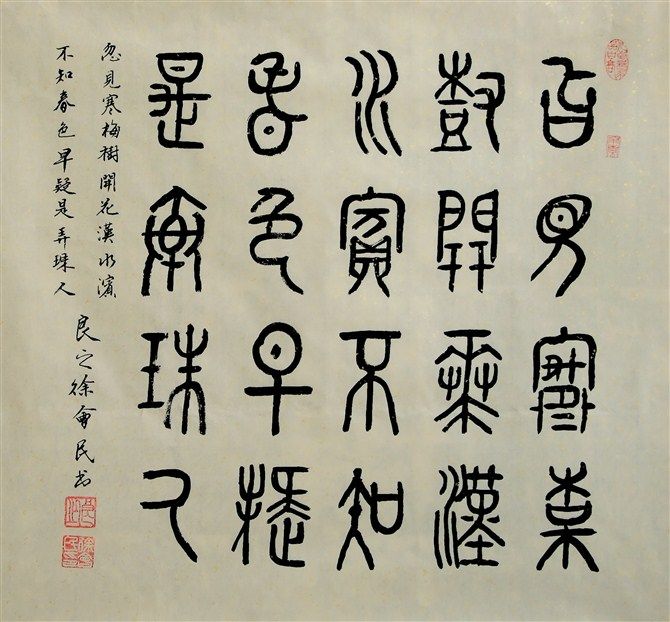 忽見寒梅
樹開花漢
水濱不知
春色早疑
是弄珠人
忽見寒梅樹開花漢水濱
不知春色早疑是弄珠人
良之徐會民书